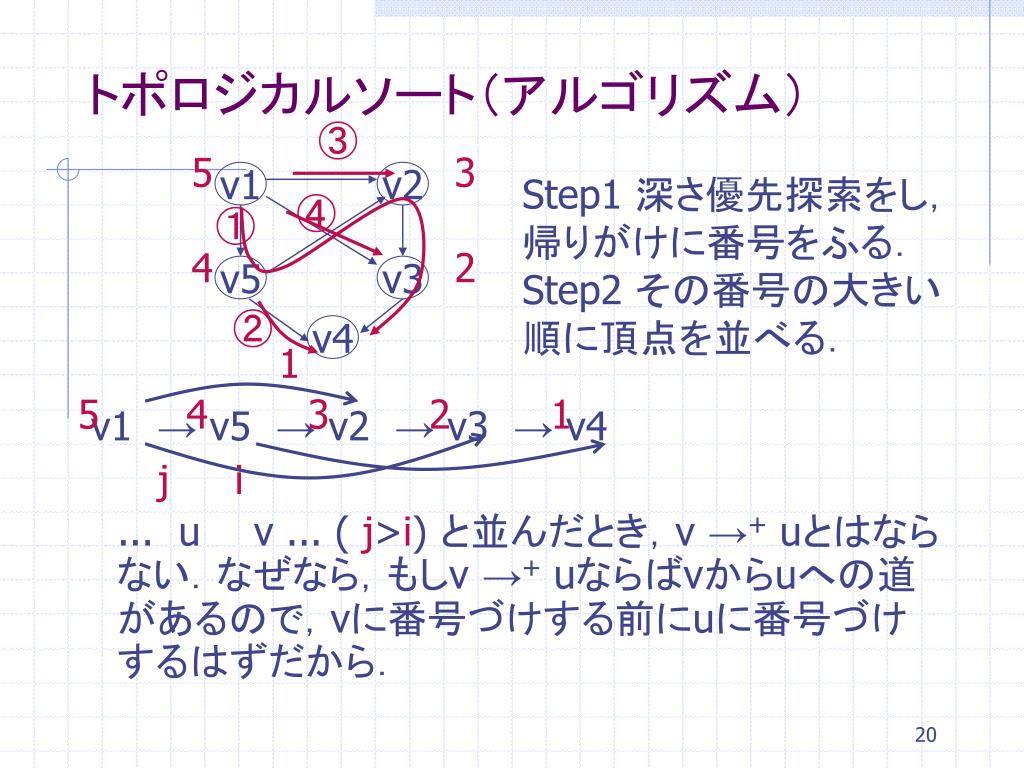 トポロジカルソート(アルゴリズム)
③
5 v1 v2 3
① ④
4 v5 v3 2
② v4
1
Step1 深さ優先探索をし,
帰りがけに番号をふる.
Step2 その番号の大きい
順に頂点を並べる.
5 4 3 2 1
v1 →v5 →v2 →v3 →v4
j i
… u v … ( j>i) と並んだとき, v →+ uとはなら
ない. なぜなら, もしv →+ uならばvからuへの道
があるので, vに番号づけする前にuに番号づけ
するはずだから.
20